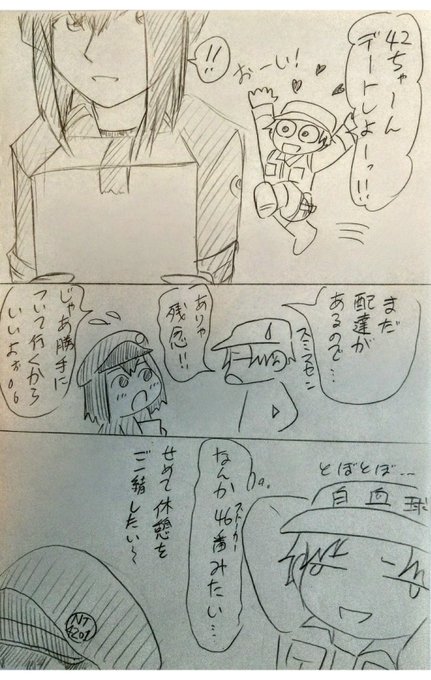 42ちゃーん
デートしよーっ!!
おーい!
!!
まだ
配達が
あるので…
スミマセン
ありゃ
残念!!
じゃあ勝手に
ついて行くから
いいよぉ
とぼとぼ…
白血球
なんか46番みたい…
ストーカー
せめて休憩を
ご一緒したい〜
NT
4201